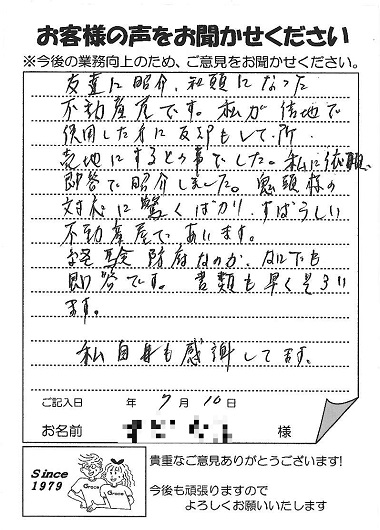 お客様の声をお聞かせください
※今後の業務向上のため、ご意見をお聞かせください。
友達に紹介、和頭になった
不動産屋です。私が借地で
使用した
売地にするとの事でした。私に依頼、
即答で紹介しました。鬼頭様の
対応に驚くばかり、すばらしい
不動産屋であいます。
経験防府なのか、なにでも
即答です。書類も早くそろい
ます。
私自身も感謝してます。
ご記入日 年 7月 10日
お名前 様
Since
1979
Grace
Grace
貴重なご意見ありがとうございます!
今後も頑張りますので
よろしくお願いいたします